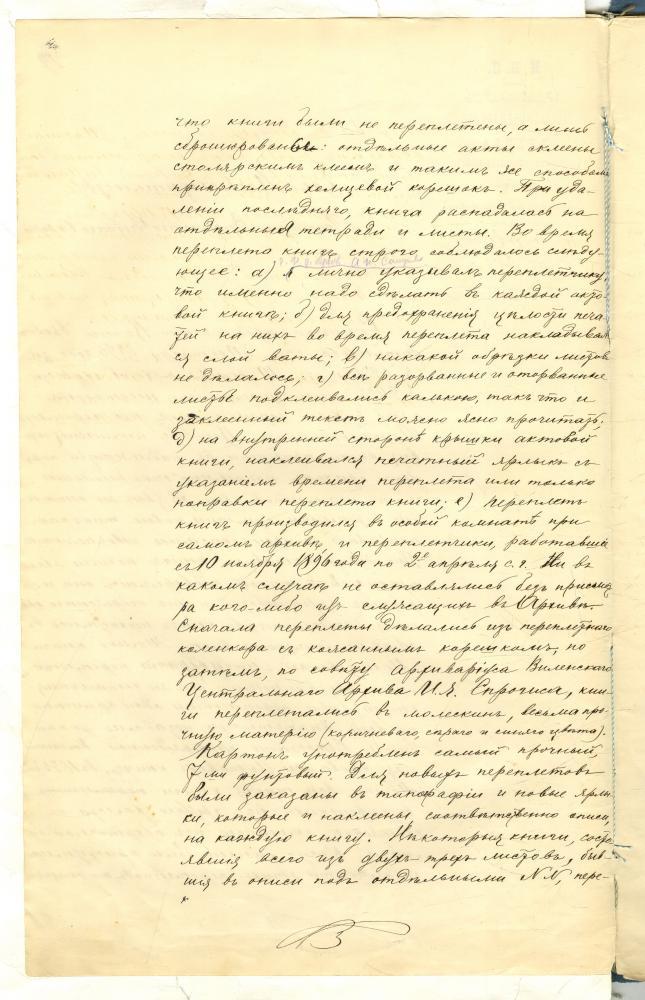 что книги были не переплетены, а лишь
сброшюрованы: отдѣльные акты склеены
столярскимъ клеемъ и такимъ же способомъ
прикрѣпленъ холщевой корешокъ. При уда-
леніи послѣдняго, книга распадалась на
отдѣльныя тетради и листы. Во время
переплета книгъ строго соблюдалось слѣду-
ющее: а) я лично указывалъ переплетчику,
что именно надо сдѣлать въ каждой акто-
вой книгѣ; б) для предохраненія цѣлости печа-
тей на нихъ во время переплета накладывал-
ся слой ваты; в) никакой обрѣзки листовъ
не дѣлалось; г) всѣ разорванные и оторванные
листы подклеивались калькою, такъ что и
заклеенный текстъ можно ясно прочитать.
д) на внутренней сторонѣ крышки актовой
книги, наклеивался печатный ярлыкъ съ
указаніемъ времени переплета или только
поправки переплета книги; е) переплетъ
книгъ производился въ особой комнатѣ при
самомъ архивѣ и переплетчики, работавшіе
съ 10 ноября 1896 года по 2е апрѣля с. г. ни въ
какомъ случаѣ не оставлялись безъ присмот-
ра кого-либо изъ служащихъ въ Архивѣ.
Сначала переплеты дѣлались изъ переплетнаго
коленкора съ кожаннымъ корешкомъ, но
затѣмъ, по совѣту архиваріуса Виленскаго
Центральнаго Архива И. Я. Спрогиса, кни-
ги переплетались въ молескинъ, весьма про-
чную матерію (коричневаго, сѣраго и синяго цвѣта).
Картонъ употребленъ самый прочный,
7 ми фунтовый. Для новыхъ переплетовъ
были заказаны въ типографіи и новые ярлы-
ки, которые и наклеены, соотвѣтственно описи,
на каждую книгу. Нѣкоторыя книги, состо-
явшія всего изъ двухъ-трехъ листовъ, быв-
шія въ описи подъ отдѣльными NN, пере-